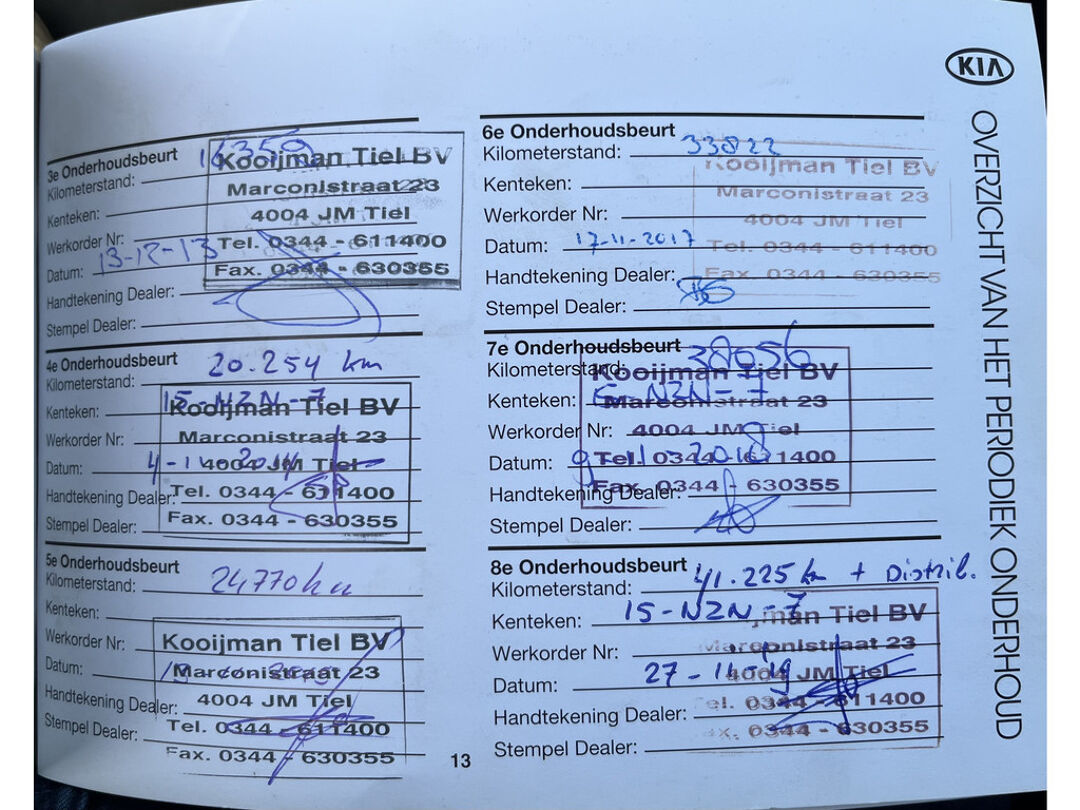 KIA
OVERZICHT VAN HET PERIODIEK ONDERHOUD
3e Onderhoudsbeurt
Kilometerstand:
Kenteken:
Werkorder Nr:
Datum: 13-12-13
Handtekening Dealer:
Stempel Dealer:
Kooijman Tiel BV
Marconistraat 23
4004 JM Tiel
Tel. 0344 - 611400
Fax. 0344 - 630355
4e Onderhoudsbeurt
Kilometerstand: 20.254 km
Kenteken: 15-NZN-7
Werkorder Nr:
Datum:
Handtekening Dealer:
Stempel Dealer:
Kooijman Tiel BV
Marconistraat 23
4004 JM Tiel
Tel. 0344 - 611400
Fax. 0344 - 630355
5e Onderhoudsbeurt
Kilometerstand: 24770 km
Kenteken:
Werkorder Nr:
Datum:
Handtekening Dealer:
Stempel Dealer:
Kooijman Tiel BV
Marconistraat 23
4004 JM Tiel
Tel. 0344 - 611400
Fax. 0344 - 630355
6e Onderhoudsbeurt
Kilometerstand: 33822
Kenteken:
Werkorder Nr:
Datum: 17-11-2017
Handtekening Dealer:
Stempel Dealer:
Kooijman Tiel BV
Marconistraat 23
4004 JM Tiel
Tel. 0344 - 611400
Fax. 0344 - 630355
7e Onderhoudsbeurt
Kilometerstand: 38056
Kenteken:
Werkorder Nr:
Datum:
Handtekening Dealer:
Stempel Dealer:
Kooijman Tiel BV
Marconistraat 23
4004 JM Tiel
Tel. 0344 - 611400
Fax. 0344 - 630355
8e Onderhoudsbeurt
Kilometerstand: 41.225 km + Distrib.
Kenteken: 15-NZN-7
Werkorder Nr:
Datum:
Handtekening Dealer:
Stempel Dealer:
Tiel BV
Marconistraat 23
4004 JM Tiel
0344 - 611400
0344 - 630355
13